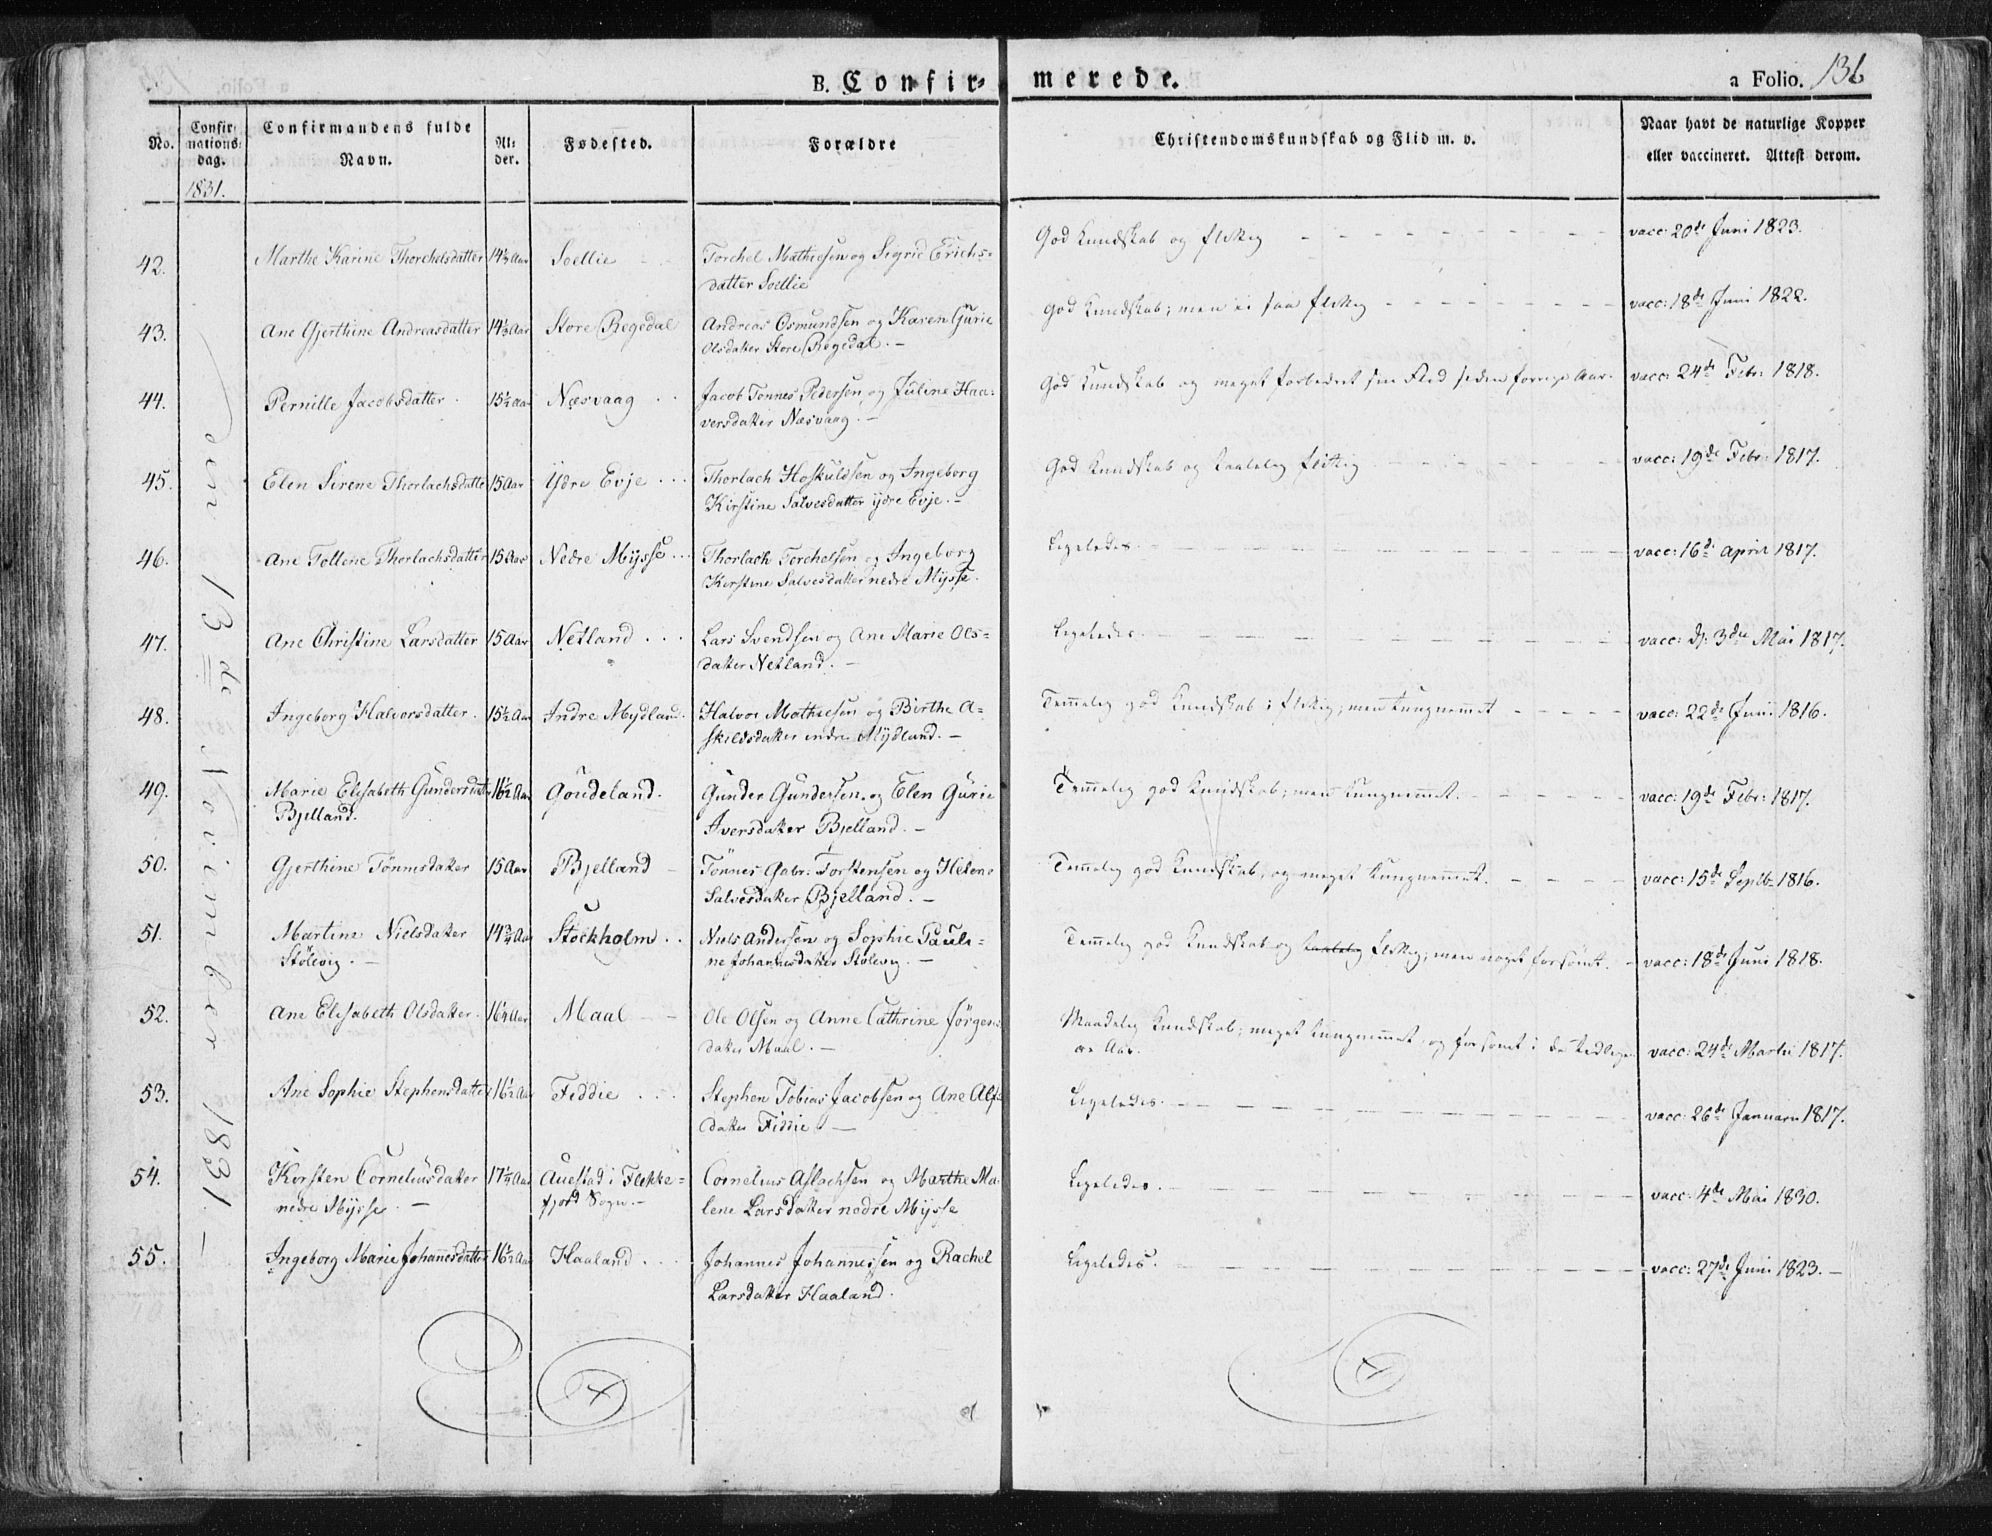 B. Confir- merede. a Folio. 136
No.
Confir-
mations-
dag.
Confirmandens fulde
Navn.
Al-
der.
Fødested.
Forældre
Christendomskundskab og Flid m. v.
Naar havt de naturlige Kopper
eller vaccineret. Attest derom.
1831.
den 13de November 1831. —
42. Marthe Karine Thorchelsdatter 14½ Aar Soellie Torchel Mathiesen og Sigrid Erichs- God Kundskab og flittig vacc: 20de Juni 1823.
datter Soellie
43. Ane Gjerthine Andreasdatter 14½ Aar Store Regedal Andreas Osmundsen og Karen Gurie God Kundskab; men ei saa flittig vacc: 18de Juni 1822.
Olsdatter Store Regedal. —
44. Pernille Jacobsdatter 15½ Aar Næsvaag Jacob Tønnes Pedersen og Juline Haa- God Kundskab og meget forbedret sin Flid siden forrige Aar. vacc: 24de Febr: 1818.
versdatter Næsvaag. —
45. Elen Sirene Thorlachsdatte 15 Aar Ydre Evje Thorlach Hoskuldsen og Ingeborg God Kundskab og taalelig flittig vacc: 19de Febr: 1817.
Kirstine Salvesdatter ydre Evje. —
46. Ane Tollene Thorlachsdatter 15 Aar Nedre Mysse Thorlach Torchelsen og Ingeborg Ligeledes. vacc: 16de April 1817.
Kirstine Salvesdatter nedre Mysse.
47. Ane Christine Larsdatter 15 Aar Netland Lars Svendsen og Ane Marie Ols- Ligeledes. vacc: d. 3die Mai 1817.
datter Netland. —
48. Ingeborg Halvorsdatter. 15½ Aar Indre Mydland. Halvor Mathiesen og Birthe A- Temmelig god Kundskab; flittig; men tungnemmet vacc: 22de Juni 1816.
skildsdatter indre Mydland. —
49. Marie Elisabeth Gundersdatter 16½ Aar Goudeland. Gunder Gundersen og Elen Gurie Temmelig god Kundskab; men tungnemmet. vacc: 19de Febr: 1817.
Bjelland. Iversdatter Bjelland. —
50. Gjerthine Tønnesdatter 15 Aar Bjelland Tønnes Gabr: Torstensen og Helene Temmelig god Kundskab, og meget tungnemmet. vacc: 15de Septbr 1816.
Salvesdatter Bjelland. —
51. Martine Nielsdatter 14¾ Aar Stockholm Niels Andersen og Sophie Pauli- Temmelig god Kundskab og taalelig flittig; men noget forsømt. vacc: 18de Juni 1818.
Stölevig. — ne Johannesdatter Stölevig. —
52. Ane Elisabeth Olsdatter. 16¼ Aar Maal Ole Olsen og Anne Cathrine Jörgens- Maadelig Kundskab; meget tungnemmet og forsømt i de tidlige- vacc: 24de Martii 1817.
datter Maal. — re Aar.
53. Ane Sophie Stephensdatter 16½ Aar Fiddie Stephen Tobias Jacobsen og Ane Alf- Ligeledes. vacc: 26de Januari 1817.
datter Fiddie. —
54. Kirsten Corneliusdatter 17¼ Aar Auestad i Flekke- Cornelius Aslachsen og Marthe Ma- Ligeledes. vacc: 4de Mai 1830.
nedre Mysse. — fjord Sogn. — lene Larsdatter nedre Mysse
55. Ingeborg Marie Johannesdatter 16½ Aar Haaland Johannes Johannessen og Rachel Ligeledes. vacc: 27de Juni 1823. —
Larsdatter Haaland.